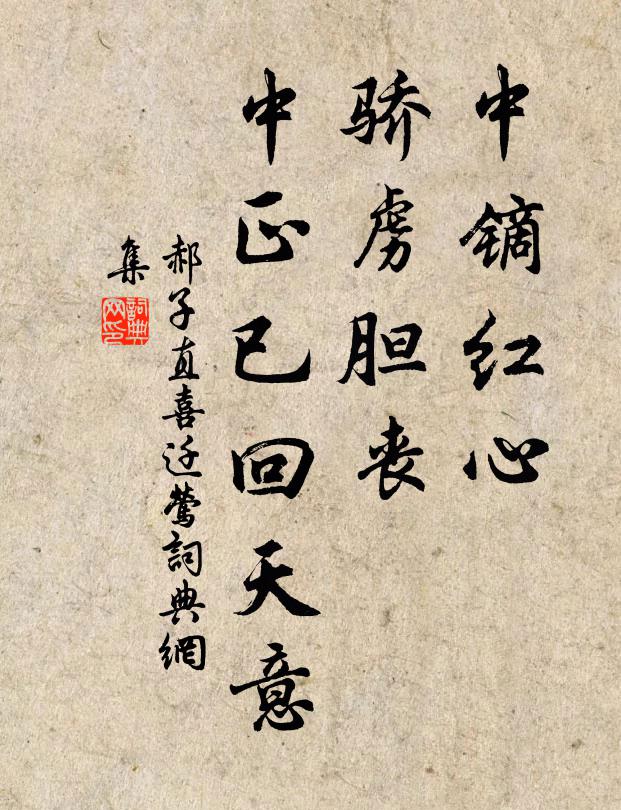 中镝红心
骄虏胆丧
中正已回天意
郝子直喜迁莺詞典網
集
詞典网印